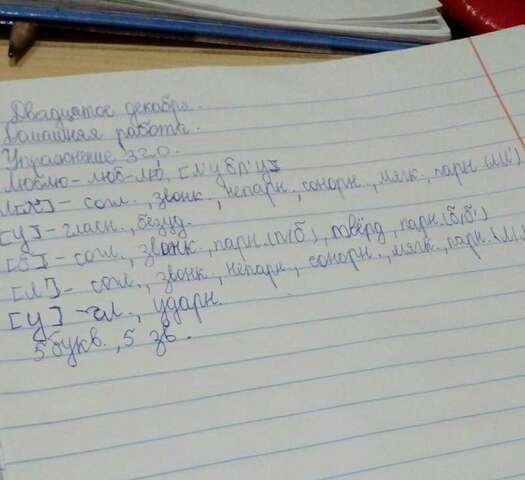 Двадцатое декабря.
Домашняя работа.
Упражнение 320.
Люблю - люб-лю, [л'убл'у]
Л[л'] - согл., звонк., непарн., сонорн., мягк., парн (л/л')
[у] - гласн., безуд.
[б] - согл., звонк., парн. (п/б), твёрд, парн. (б/б')
[л] - согл., звонк., непарн., сонорн., мягк., парн. (л/л
[у] - гл., ударн.
5 букв., 5 зв.